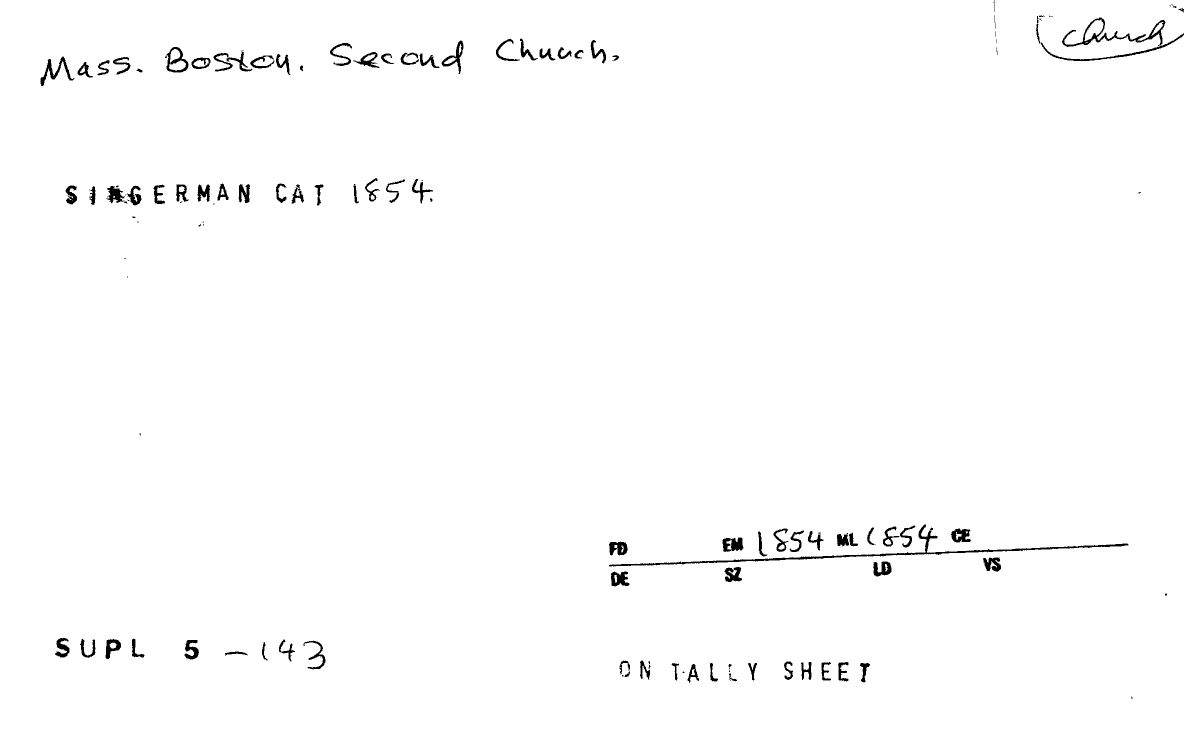 church
Mass. Boston. Second Church.
SINGERMAN CAT 1854.
FD EM 1854 ML 1854 CE
DE SZ LD VS
SUPL 5 - 143
ON TALLY SHEET